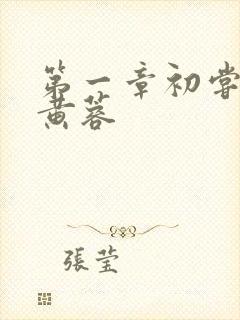 第一章初嘗
黄蓉
張莹